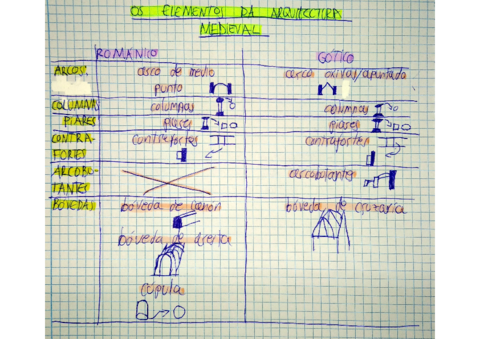 OS ELEMENTOS DA ARQUITECTURA
MEDIEVAL
ROMÁNICO
GÓTICO
ARCOS:
arco de medio
punto
arcos oxivas/apuntado
COLUMNAS
columnas
columnas
PIARES
piares
piares
CONTRA-
FORTES
contrafortes
contrafortes
ARCOBO-
TANTES
arcobotantes
BÓVEDAS
bóveda de canón
bóveda de cruxaría
bóveda de aresta
cúpula